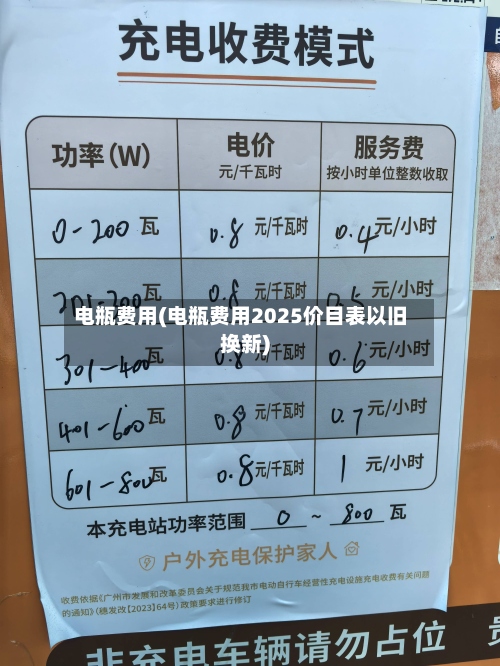 充电收费模式
功率(W) 电价 元/千瓦时 服务费 按小时单位整数收取
0-200瓦 0.8元/千瓦时 0.4元/小时
201-300瓦 0.8元/千瓦时 0.5元/小时
电瓶费用(电瓶费用2025价目表以旧
换新)
301-400瓦 0.8元/千瓦时 0.6元/小时
401-600瓦 0.8元/千瓦时 0.7元/小时
601-800瓦 0.8元/千瓦时 1元/小时
本充电站功率范围 0 ~ 800 瓦
户外充电保护家人
收费依据《广州市发展和改革委员会关于规范我市电动自行车经营性充电设施充电收费有关问题
的通知》(穗发改【2023】64号)政策要求进行修订
非充电车辆请勿占位